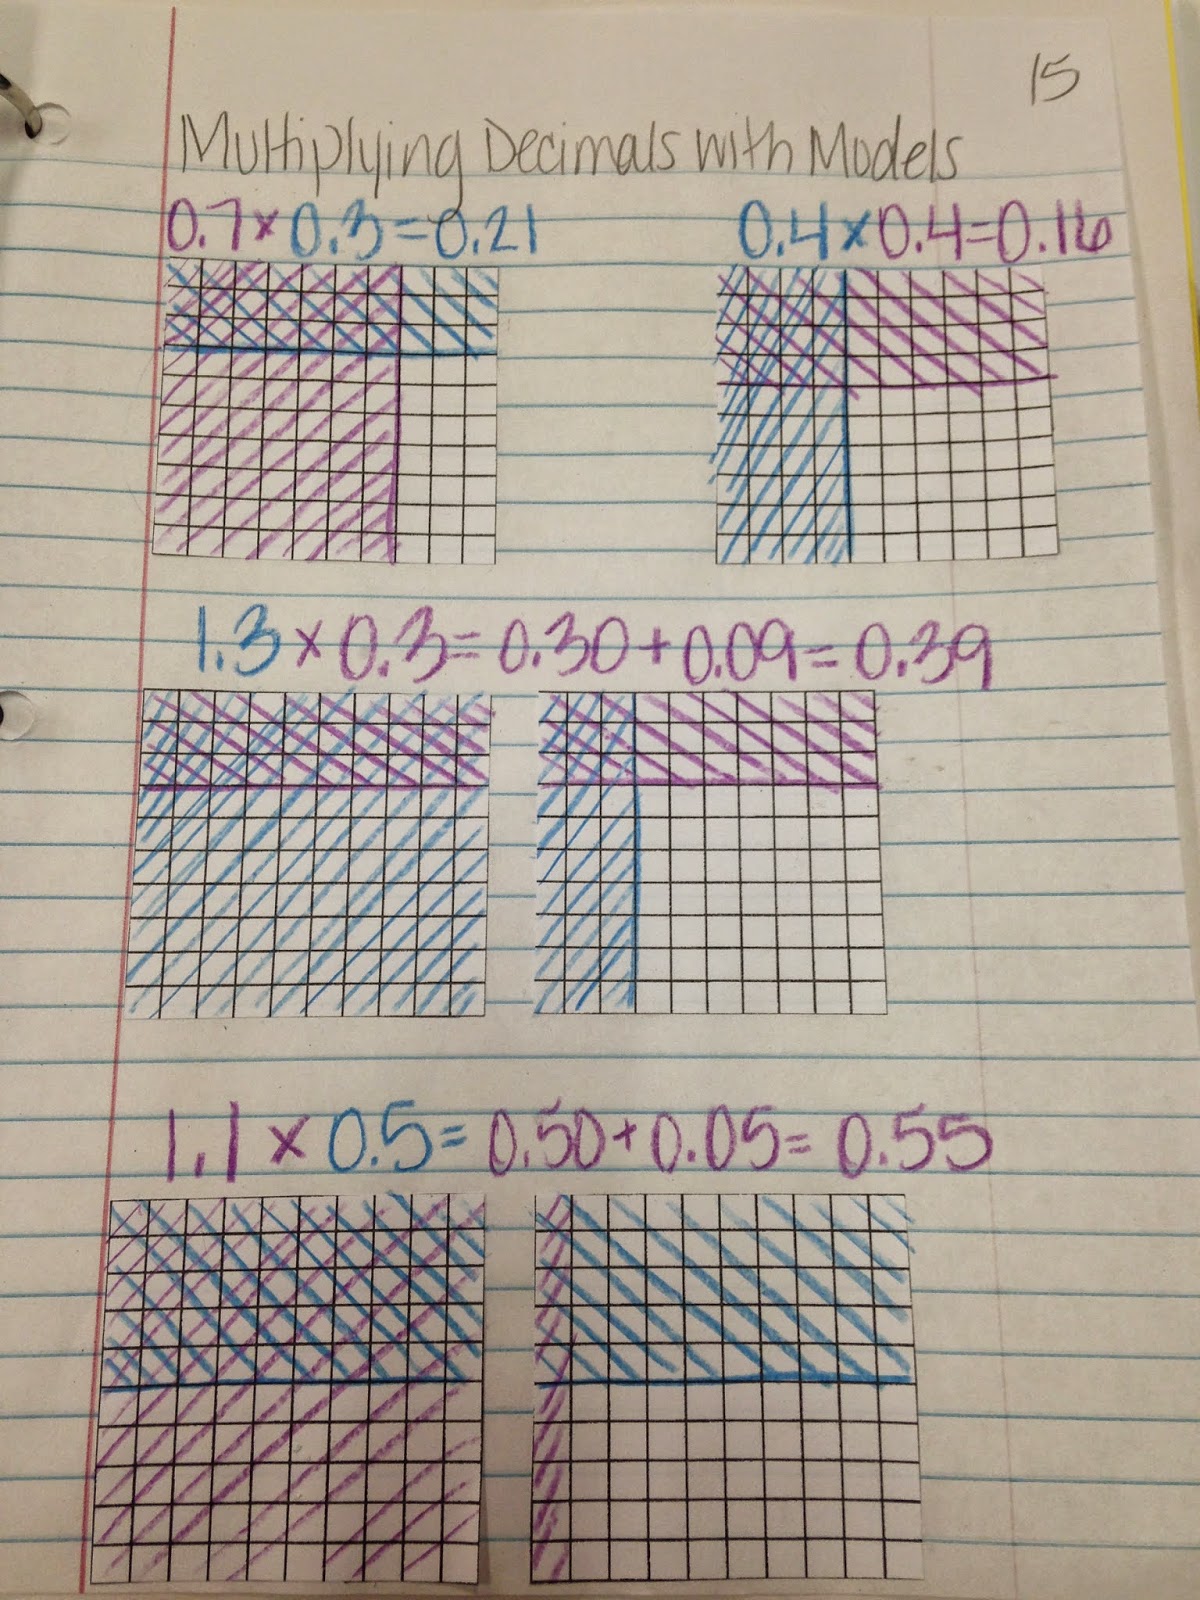 15
Multiplying Decimals with Models
0.7 x 0.3 = 0.21
0.4 x 0.4 = 0.16
1.3 x 0.3 = 0.30 + 0.09 = 0.39
1.1 x 0.5 = 0.50 + 0.05 = 0.55